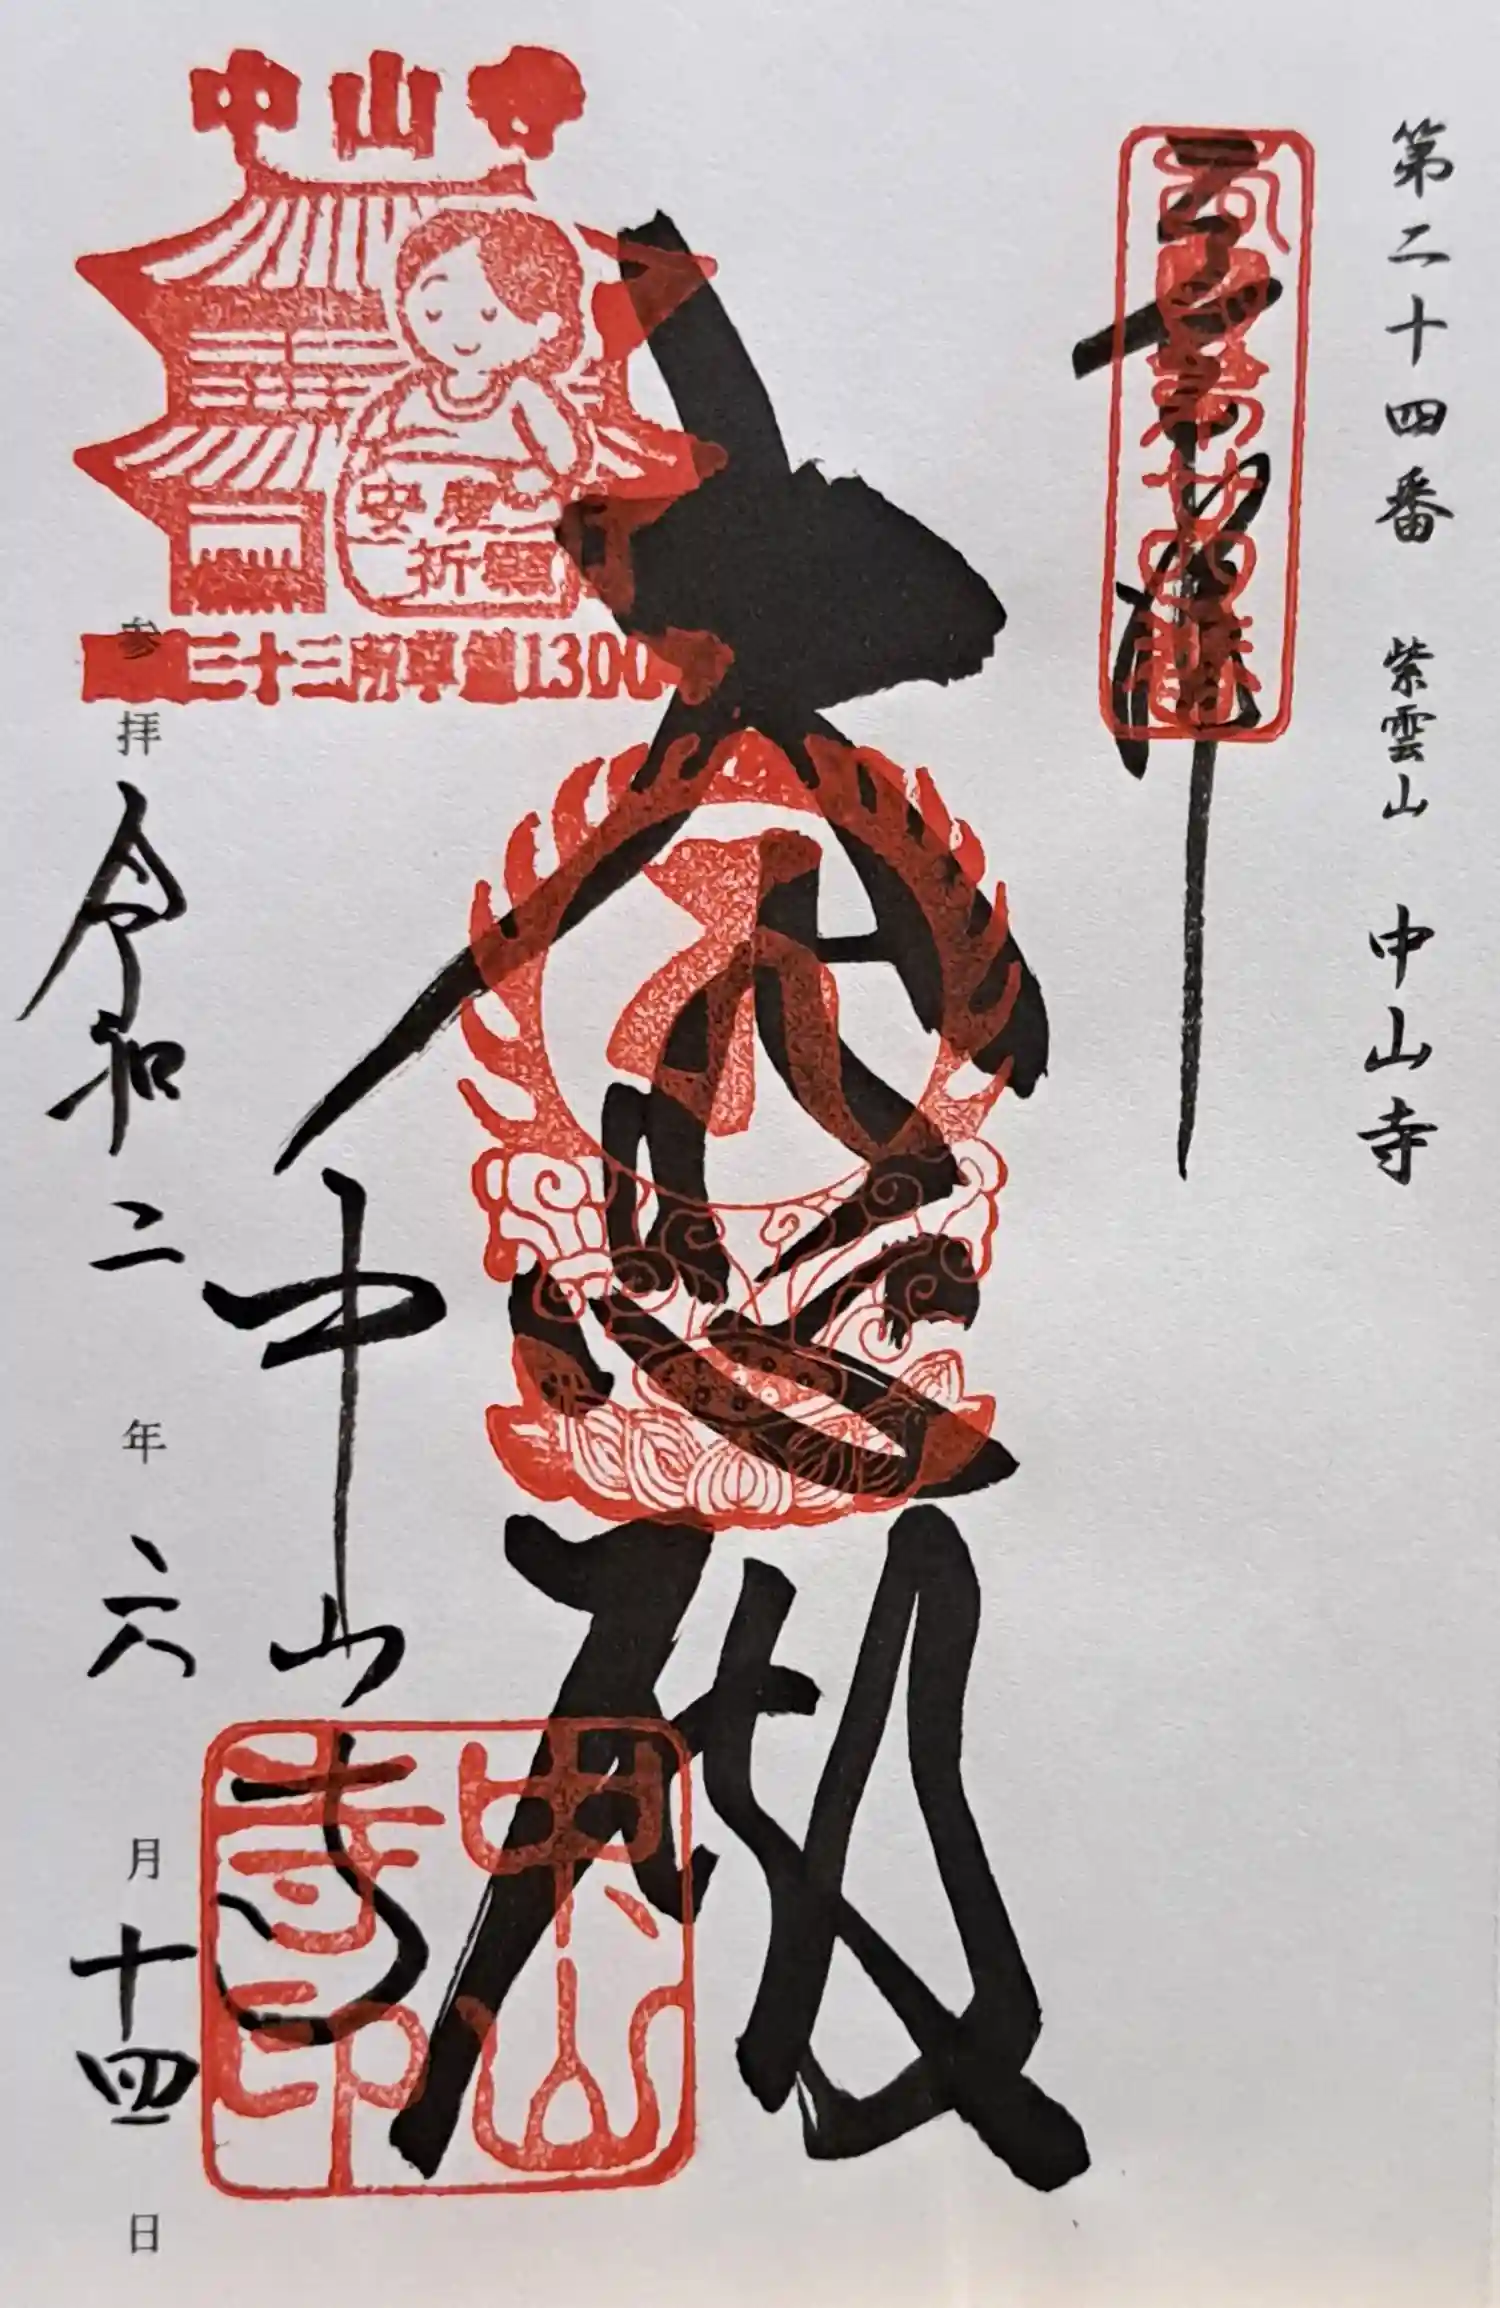 第二十四番 紫雲山 中山寺
西國第廿四番
大悲殿
中山寺
安産
祈願
三十三所草創1300
中山寺
中山寺印
参拝 令和二年六月十四日